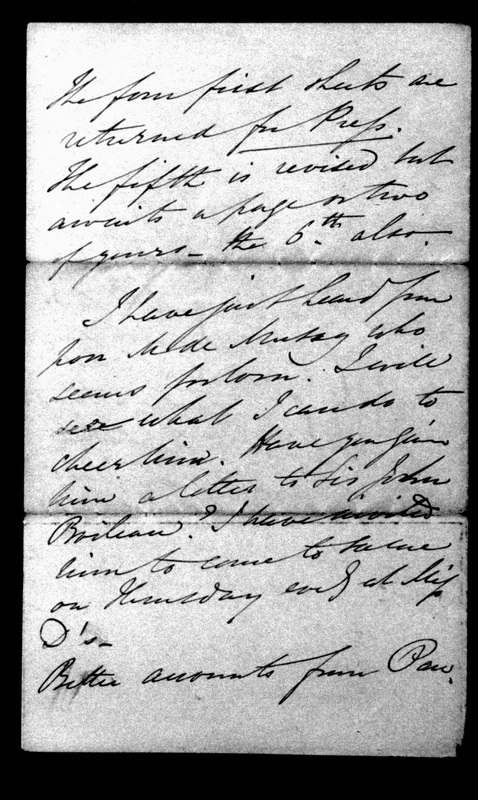 The four first sheets are
returned for Press.
The fifth is revised but
awaits a page or two
of yours — the 6th. also.
I have just heard from
poor M. de who
seems forlorn. I will
see what I can do to
cheer him. Have you given
him a letter to Sir John
Boileau? I have invited
him to come to
on Thursday eveg at Miss
D's —
Better accounts from Pau.